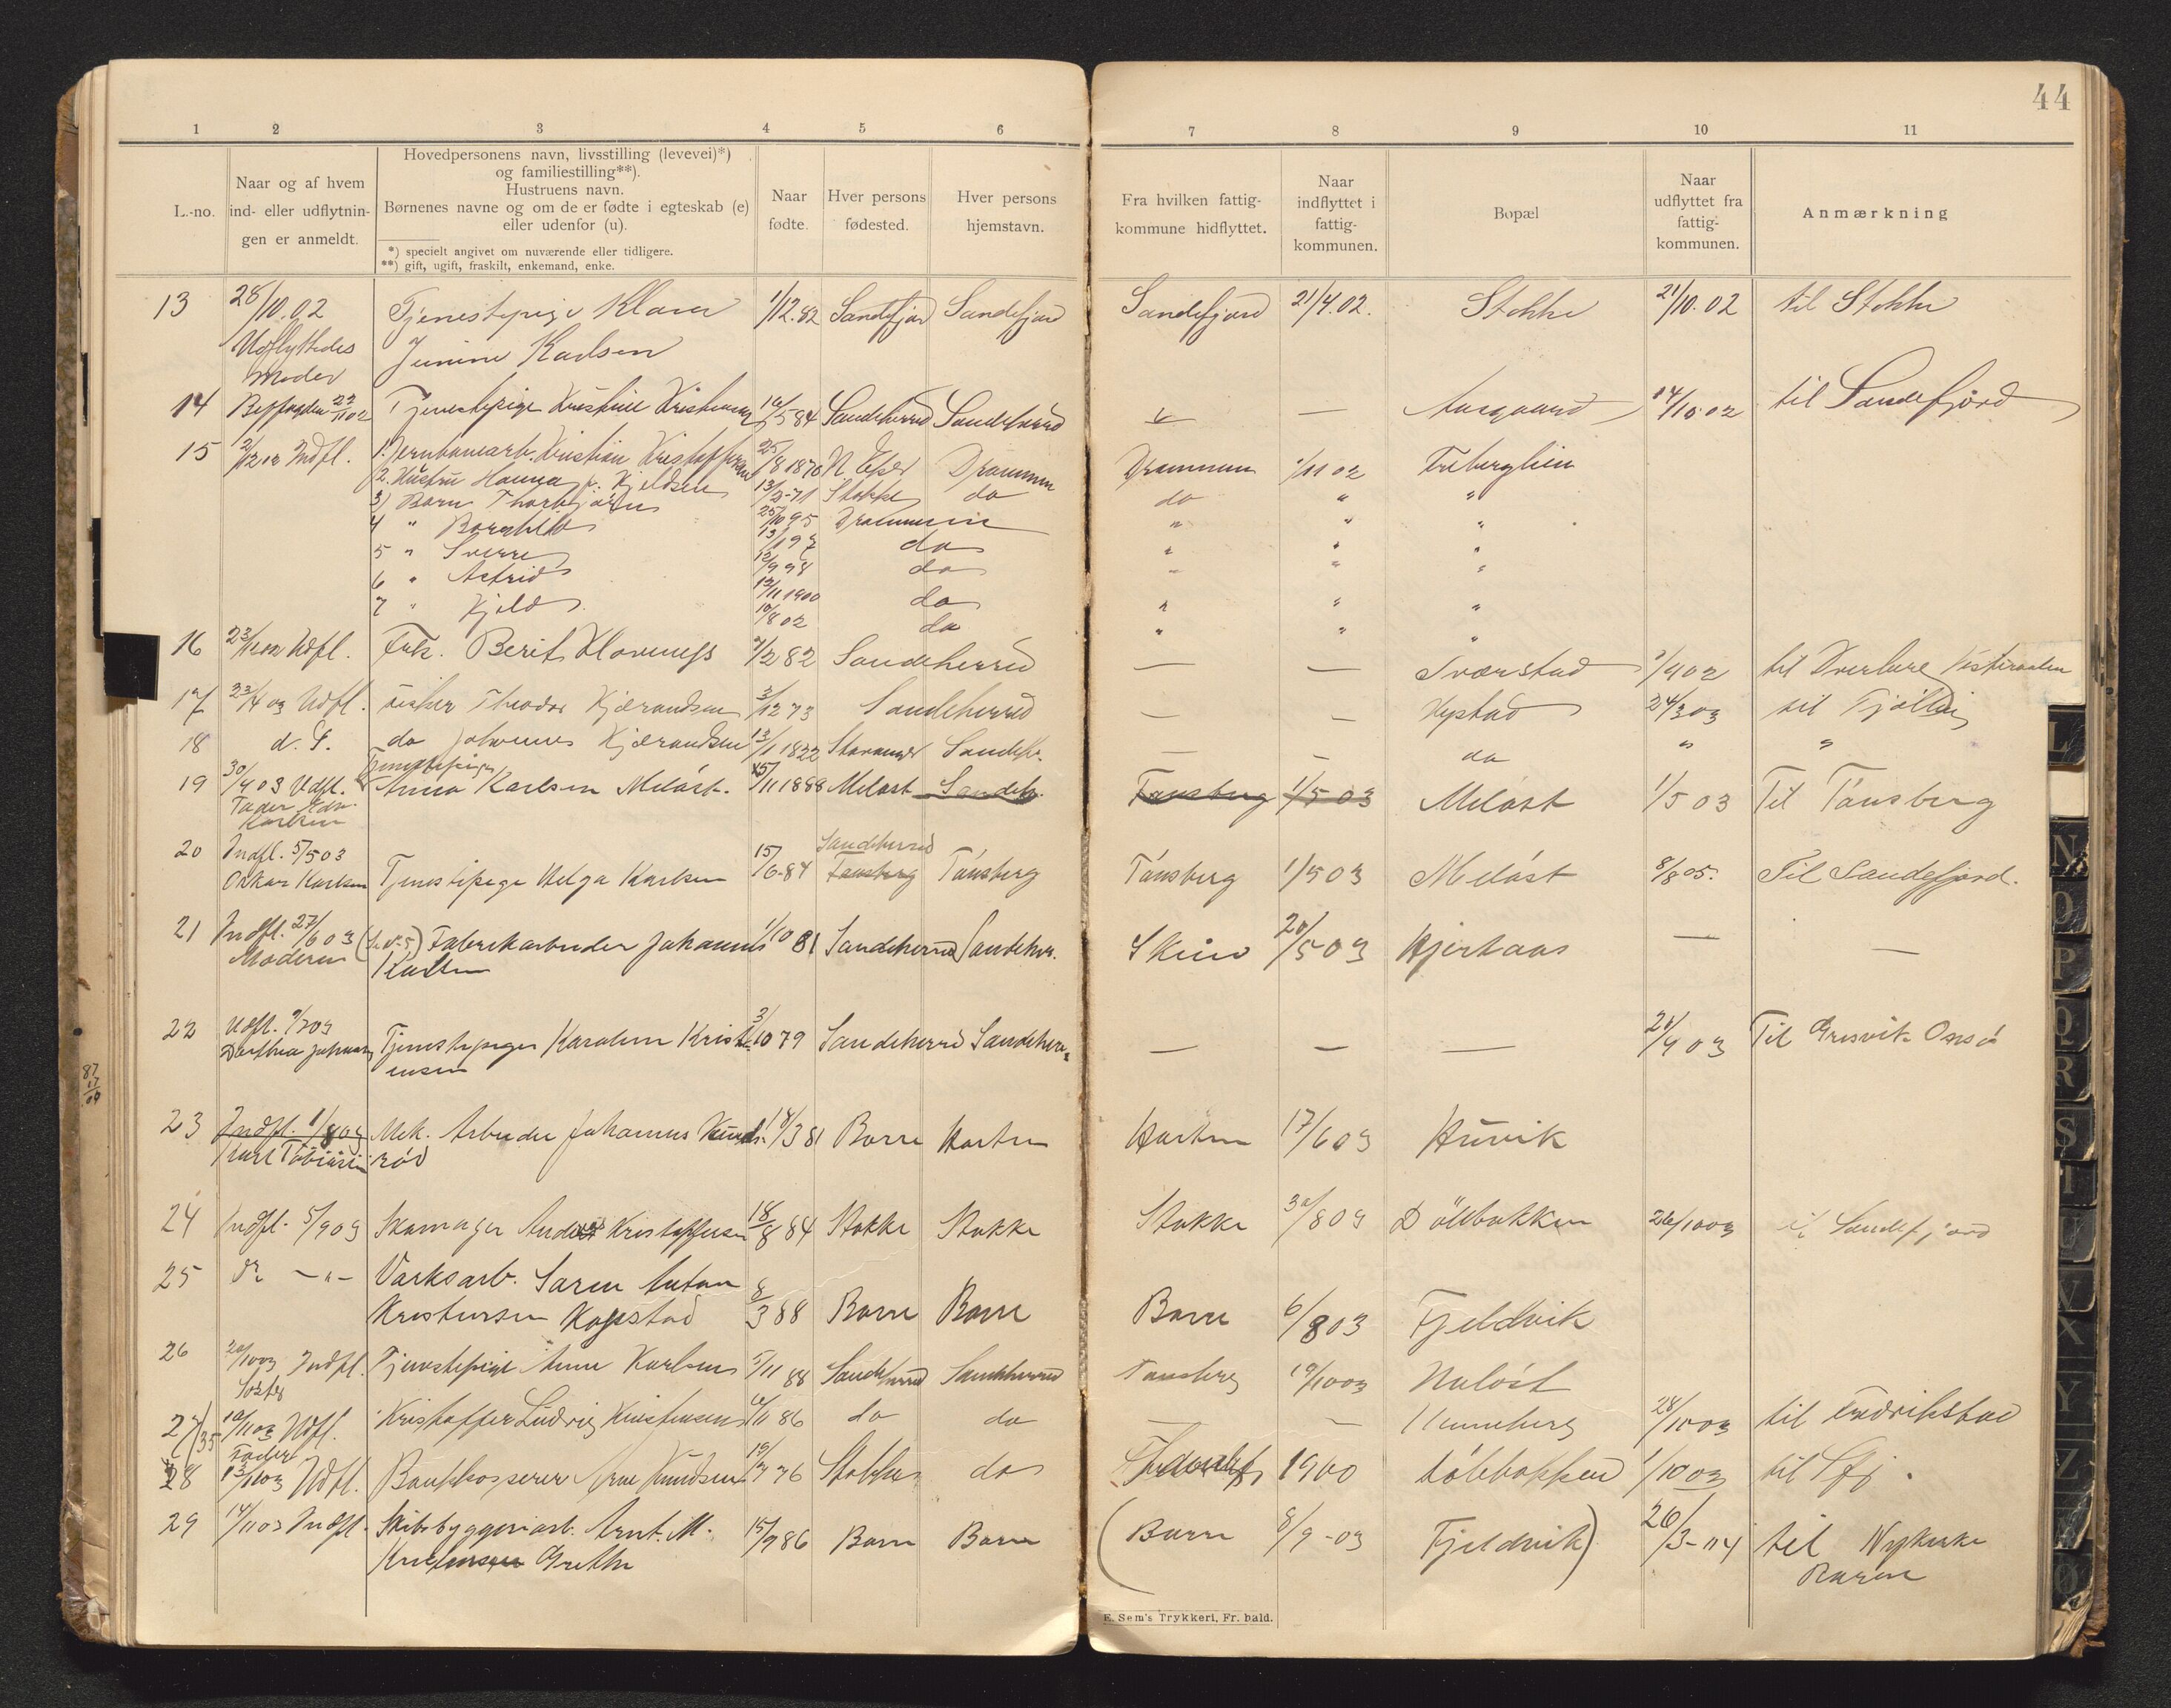 44
1 2 3 4 5 6 7 8 9 10 11
L.-no.
Naar og af hvem
ind- eller udflytnin-
gen er anmeldt.
Hovedpersonens navn, livsstilling (levevei)*)
og familiestilling**).
Hustruens navn.
Børnenes navne og om de er fødte i egteskab (e)
eller udenfor (u).
*) specielt angivet om nuværende eller tidligere.
**) gift, ugift, fraskilt, enkemand, enke.
Naar
fødte.
Hver persons
fødested.
Hver persons
hjemstavn.
Fra hvilken fattig-
kommune hidflyttet.
Naar
indflyttet i
fattig-
kommunen.
Bopæl
Naar
udflyttet fra
fattig-
kommunen.
Anmærkning
13 28/10.02 Tjenestepige Klara 1/12.82 Sandefjord Sandefjord Sandefjord 21/4.02. Stokke 21/10.02 til Stokke
Udflyttedes Junine Karlsen
Moder
14 22/11 02 Tjenestepige Kristine Kristensen 16/5 84 Sandeherred Sandeherred — Aasgaard 14/10 02 til Sandefjord
15 2/12 02 Indfl. 1. Jernbanearb. Kristian Kristoffersen 25/8 1870 N. Eker Drammen Drammen 1/11 02 Freberglien
2. Hustru Hanna f. Kjeldsen 13/2-71 Stokke do do " "
3) Barn Thorbjørn 25/10 95 Drammen " " "
4 " Borghild 13/1 97 do " " "
5 " Sverre 12/9 98 do " " "
6 " Astrid 12/11 1900 do " " "
7 " Kjeld 10/8 02 do " " "
16 23/12 02 Udfl. Frk. Berit Klavenes 7/2 82 Sandeherred — — Sværstad 1/9 02 til Vesteraalen
17 23/4 03 Udfl. Fisker Theodor Kjærandsen 3/12 73 Sandeherred — — Nystad 24/3 03 til Tjølling
18 d. S. do Johannes Kjærandsen 13/1 1822 Stavanger Sandeh. — — do " "
Tjenestepige
19 30/4 03 Udfl. Anna Karlsen Meløst. 15/11 1888 Meløst Sandeh. Tønsberg 1/5 03 Meløst 1/5 03 Til Tønsberg
Fader Edv.
Karlsen
20 Indfl. 5/5 03 Sandeherred
Oskar Karlsen Tjenestepige Helga Karlsen 15/6-84 Tønsberg Tønsberg Tønsberg 1/5 03 Meløst 8/8 05. Til Sandefjord.
21 Indfl. 27/6 03 Fabrikarbeider Johannes 1/10 81 Sandeherred Sandeher. Skien 20/5 03 Hjertaas — —
Moderen Karlsen
22 Udfl. 9/7 03
Dorthea Johansen Tjenestepige Karoline Krist- 3/10 79 Sandeherred Sandeherr. — — — 21/4 03 Til Gresvik Onsø
ensen
87
17
04
23 Indfl. 1/8 03 Mek. Arbeider Johannes Knuds- 18/3 81 Borre Horten Horten 17/6 03 Huvik
Karl Tobiassen rød
24 Indfl. 5/9 03 Skomager Anders Kristoffersen 18/8 84 Stokke Stokke Stokke 30/8 03 Döllbakken 26/10 03 til Sandefjord
25 do —"— Værksarb. Søren Anton
Kristensen Kopstad 8/3 88 Borre Borre Borre 6/8 03 Fjeldvik
26 20/10 03 Indfl. Tjenestepige Anne Karlsen 5/11 88 Sandeherred Sandeherred Tønsberg 19/10 03 Meløst
Søster
27/35 10/11 03 Udfl. Kristoffer Ludvig Kristensen 6/11 86 do do — — Hunneberg 28/10 03 til Fredrikstad
Fader
28 13/11 03 Udfl. Arne Knudsen 19/7 76 Stokke do 1900 Dölebakken 1/10 03 til Sfj.
29 14/11 03 Indfl. Skibsbyggeriarb. Arnt. M. 15/9 86 Borre Borre (Borre 8/9-03 Fjeldvik) 26/3-04 til Nykirke
Kristensen Grette Borre
E. Sem's Trykkeri, Fr. hald.
L
N
O
P
Q
R
S
T
U
V
X
Y
Z
Æ
Ø